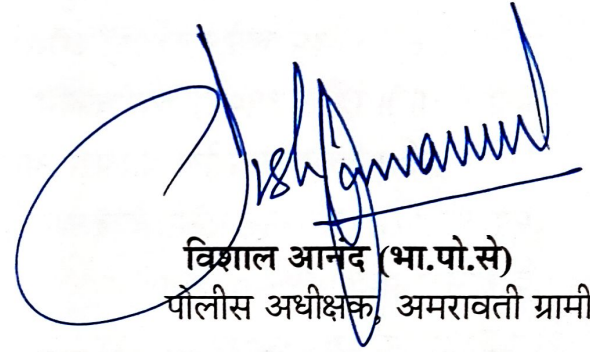 विशाल आनंद (भा.पो.से)
पोलीस अधीक्षक, अमरावती ग्रामी